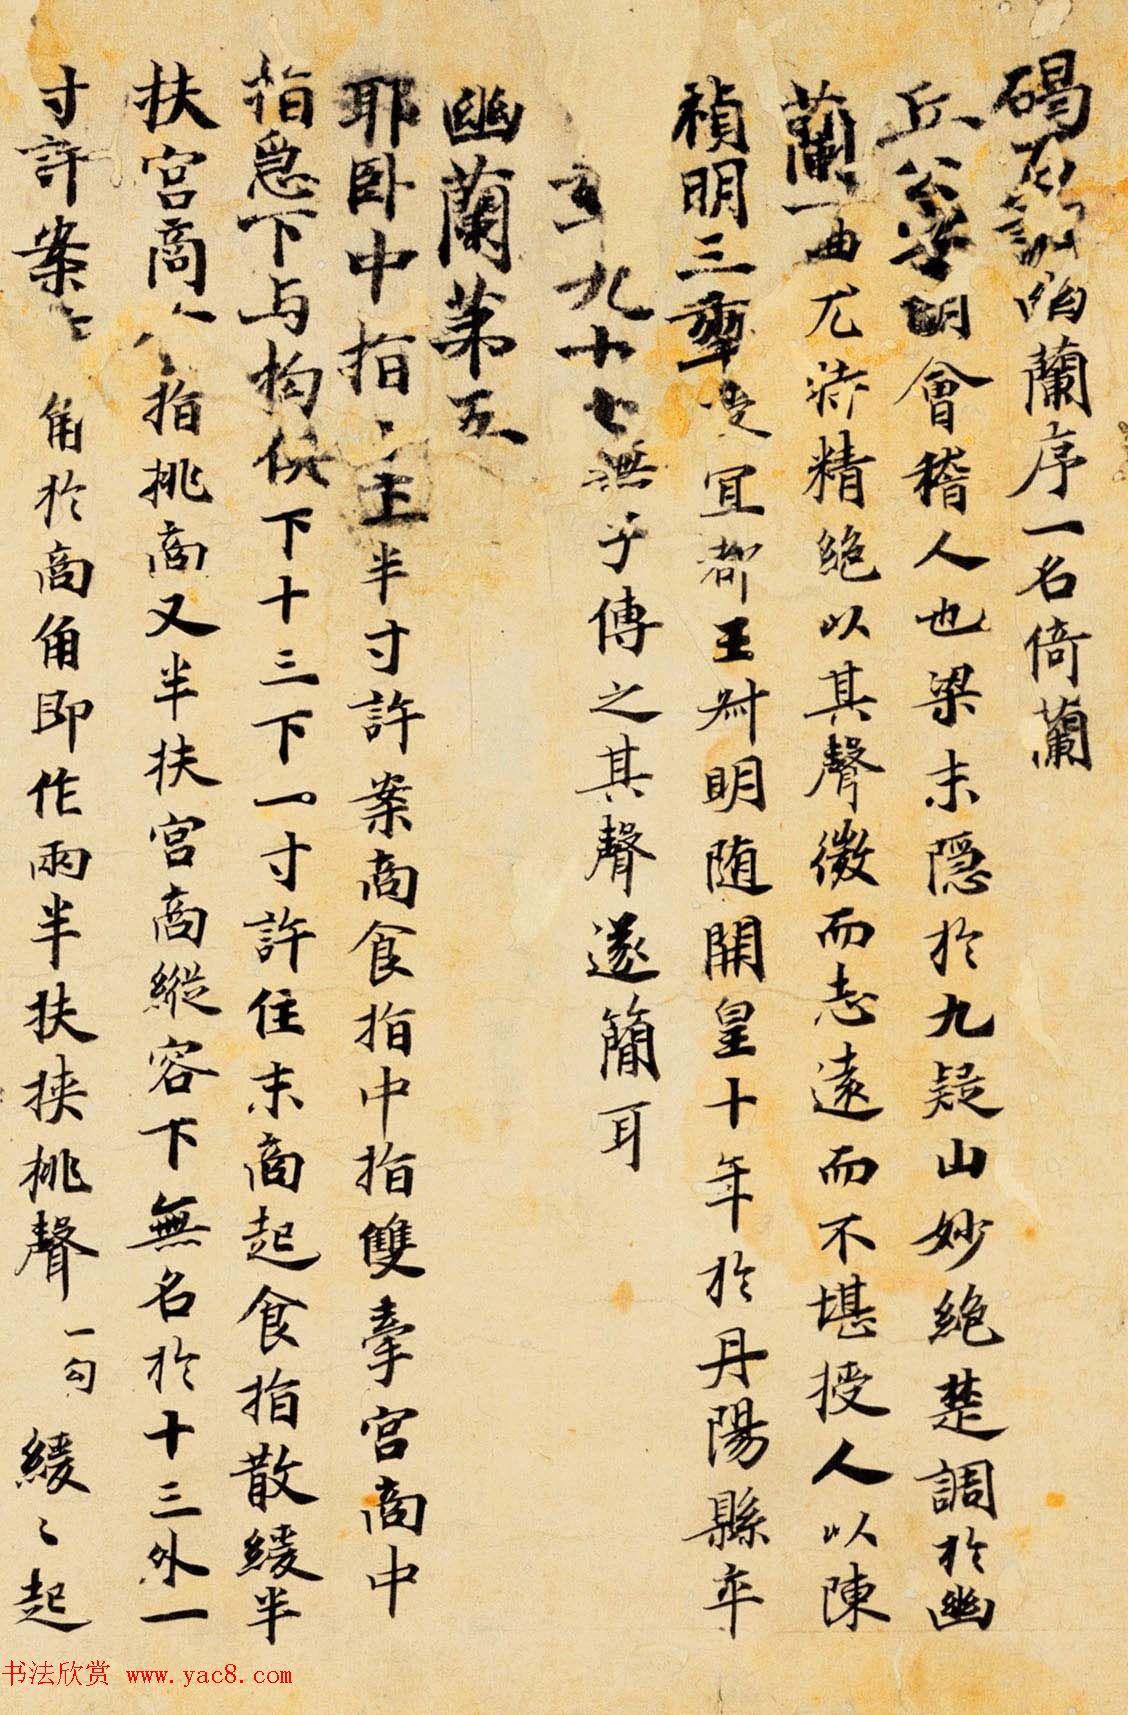 碣石調幽蘭序一名倚蘭
丘公字明會稽人也梁末隱於九疑山妙絶楚調於幽
蘭一曲尤特精絶以其聲微而志遠而不堪授人以陳
禎明三年授宜都王叔明随開皇十年於丹陽縣卒
九十七無子傳之其聲遂簡耳
幽蘭第五
耶卧中指上半寸許案商食指中指雙牽宮商中
指急下与拘俱下十三下一寸許住末商起食指散緩半
扶宮商食指挑商又半扶宮商縱容下無名於十三外一
寸許案商角於商角即作兩半扶挾挑聲一句緩緩起
书法欣赏 www.yac8.com